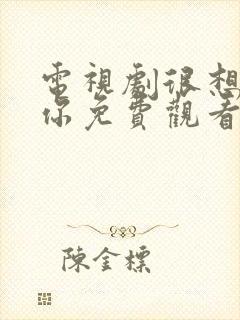 電視劇很想
你免費觀看
陳金標